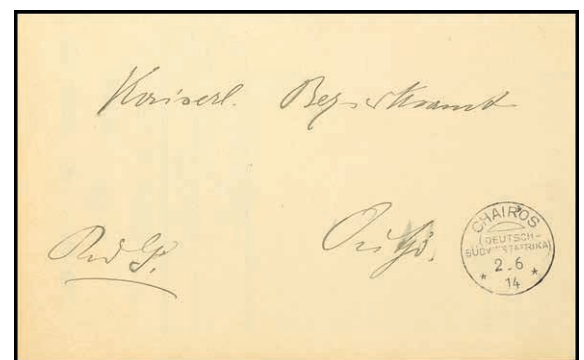 Kaiserl. Bezirksamt
Outjo.
CHAIROS
DEUTSCH-
SÜDWESTAFRIKA
* 2.6 *
14